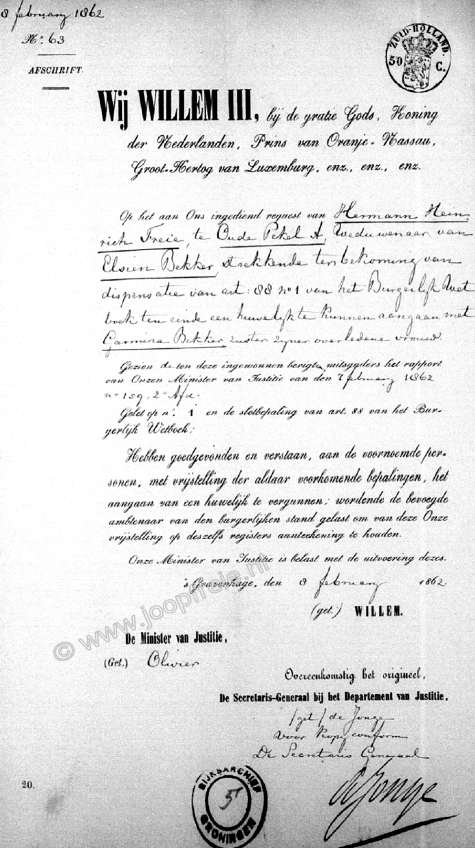 8 february 1862
No. 63
AFSCHRIFT.
ZUID-HOLLAND.
50 C.
Wij WILLEM III, bij de gratie Gods, Koning
der Nederlanden, Prins van Oranje-Nassau,
Groot-Hertog van Luxemburg, enz., enz., enz.
Op het aan Ons ingediend request van Hermann Hein
rich Freie, te Oude Pekel A, Weduwenaar van
Elsien Bekker, strekkende ter bekoming van
dispensatie van art: 88 no 1 van het Burgerlijk Wet
boek ten einde een huwelijk te kunnen aangaan met
Bekker zuster zijner overledene vrouw.
Gezien de ten deze ingewonnen berigten, mitsgaders het rapport
van Onzen Minister van Justitie van den 7 february 1862
no 159. 2e Afd.
Gelet op no. 1 en de slotbepaling van art. 88 van het Bur-
gerlijk Wetboek;
Hebben goedgevonden en verstaan, aan de voornoemde per-
sonen, met vrijstelling der aldaar voorkomende bepalingen, het
aangaan van een huwelijk te vergunnen; wordende de bevoegde
ambtenaar van den burgerlijken stand gelast om van deze Onze
vrijstelling op deszelfs registers aanteekening te houden.
Onze Minister van Justitie is belast met de uitvoering dezes.
's Gravenhage, den 8 february 1862
(get.) WILLEM.
De Minister van Justitie,
(Get.) Olivier
Overeenkomstig het origineel,
De Secretaris-Generaal bij het Departement van Justitie,
/get/ de Jonge
Voor Kopy conform
De Secretaris Generaal
de Jonge
20.
RIJKSARCHIEF
GRONINGEN
© www.joopfreie.nl